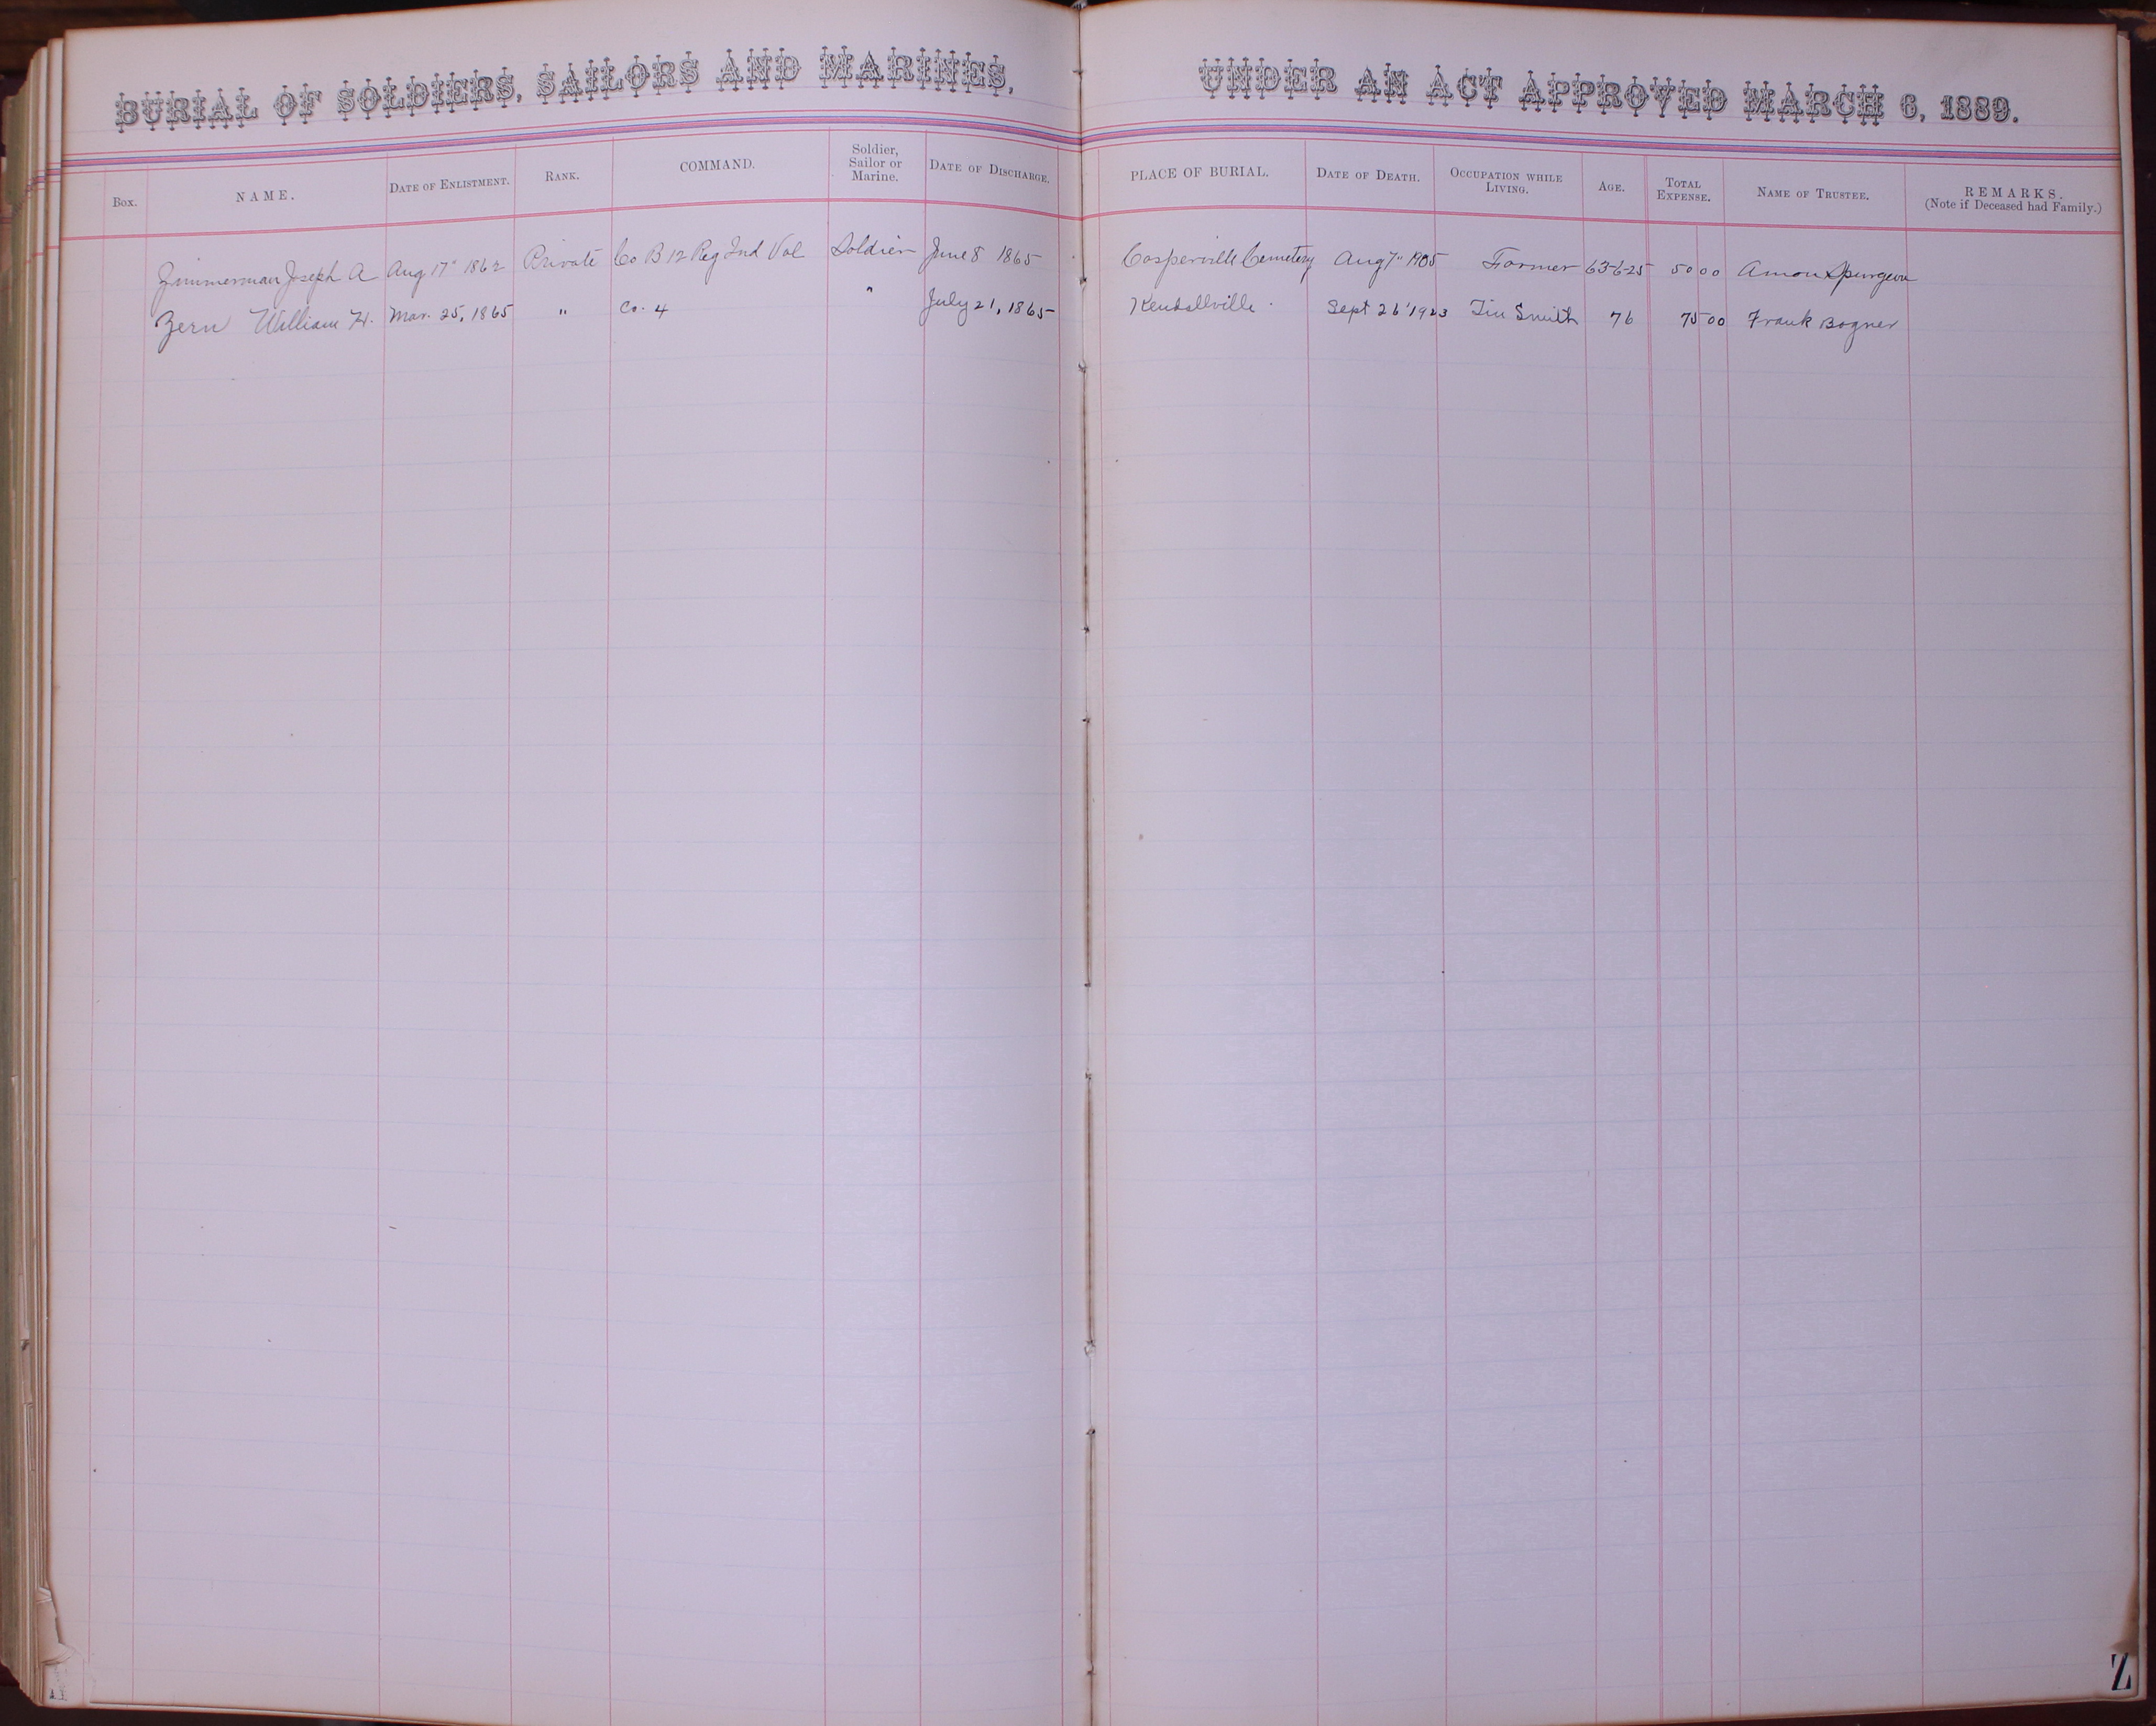 BURIAL OF SOLDIERS, SAILORS AND MARINES, UNDER AN ACT APPROVED MARCH 6, 1889.
Box. NAME. DATE OF ENLISTMENT. RANK. COMMAND. Soldier, Sailor or Marine. DATE OF DISCHARGE. PLACE OF BURIAL. DATE OF DEATH. OCCUPATION WHILE LIVING. AGE. TOTAL EXPENSE. NAME OF TRUSTEE. REMARKS. (Note if Deceased had Family.)
Zimmerman Joseph A Aug 17" 1862 Private Co B 12 Reg Ind Vol Soldier June 8 1865 Cosperville Cemetery Aug 7" 1905 Farmer 63-6-25 50 00 Amon Spurgeon
Zern William H. Mar. 25, 1865 " Co. 4 " July 21, 1865 Kendallville. Sept 26 '1923 Tin Smith 76 75 00 Frank Bogner
Z